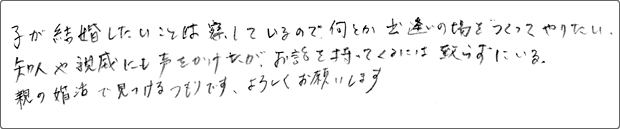 子が結婚したいことは察しているので何とか出逢いの場をつくってやりたい.
知人や親戚にも声をかけたが、お話を持ってくるには至らずにいる。
親の婚活で見つけるつもりです、よろしくお願いします